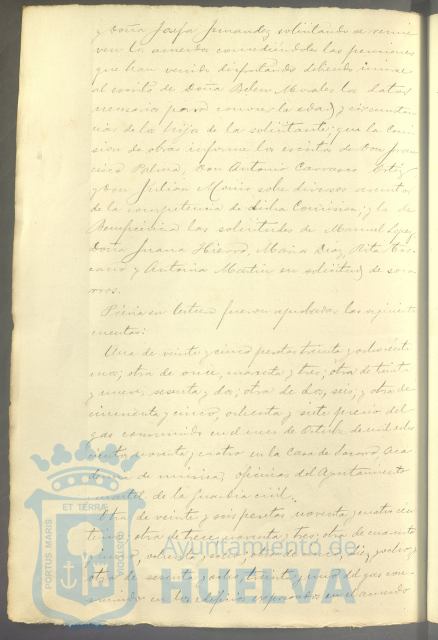 y Doña Josefa Fernandez solicitando se renue
ven los acuerdos concediendole las pensiones
que han venido disfrutando debiendo unirse
al escrito de Doña Belen Morales los datos
necesarios para conocer la edad y circunstan
cias de la hija de la solicitante; que la Comi
sion de obras informe los escritos de Don Fran
cisco Palma, Don Antonio Carrasco Ortiz
y Don Julián sobre diversos asuntos
de la competencia de dicha Comision; y la de
Beneficencia las solicitudes de Manuel Lopez,
Doña Juana Hierro, Maria Diaz, Rita
y Antonia Martin en solicitud de soco
rros.
Previa su lectura fueron aprobadas las siguientes
cuentas:
Una de veinte y cinco pesetas treinta y ocho centi
mos; otra de once, noventa y tres; otra de treinta
y nueve, sesenta y dos; otra de dos, seis; y otra de
cincuenta y cinco, ochenta y siete precio del
gas consumido en el mes de Octubre de mil ocho
cientos noventa y cuatro en la Casa de Socorro, Aca
demia de música, oficinas del Ayuntamiento
y cuartel de la Guardia civil.
Otra de veinte y seis pesetas noventa y cuatro cen
timos; otra de trece, noventa y tres; otra de cuarenta
otra de sesenta y ocho, treinta y uno del gas con
sumido en los edificios expresados en el
PORTUS MARIS ET TERRAE CUSTODIA
Ayuntamiento de
HUELVA